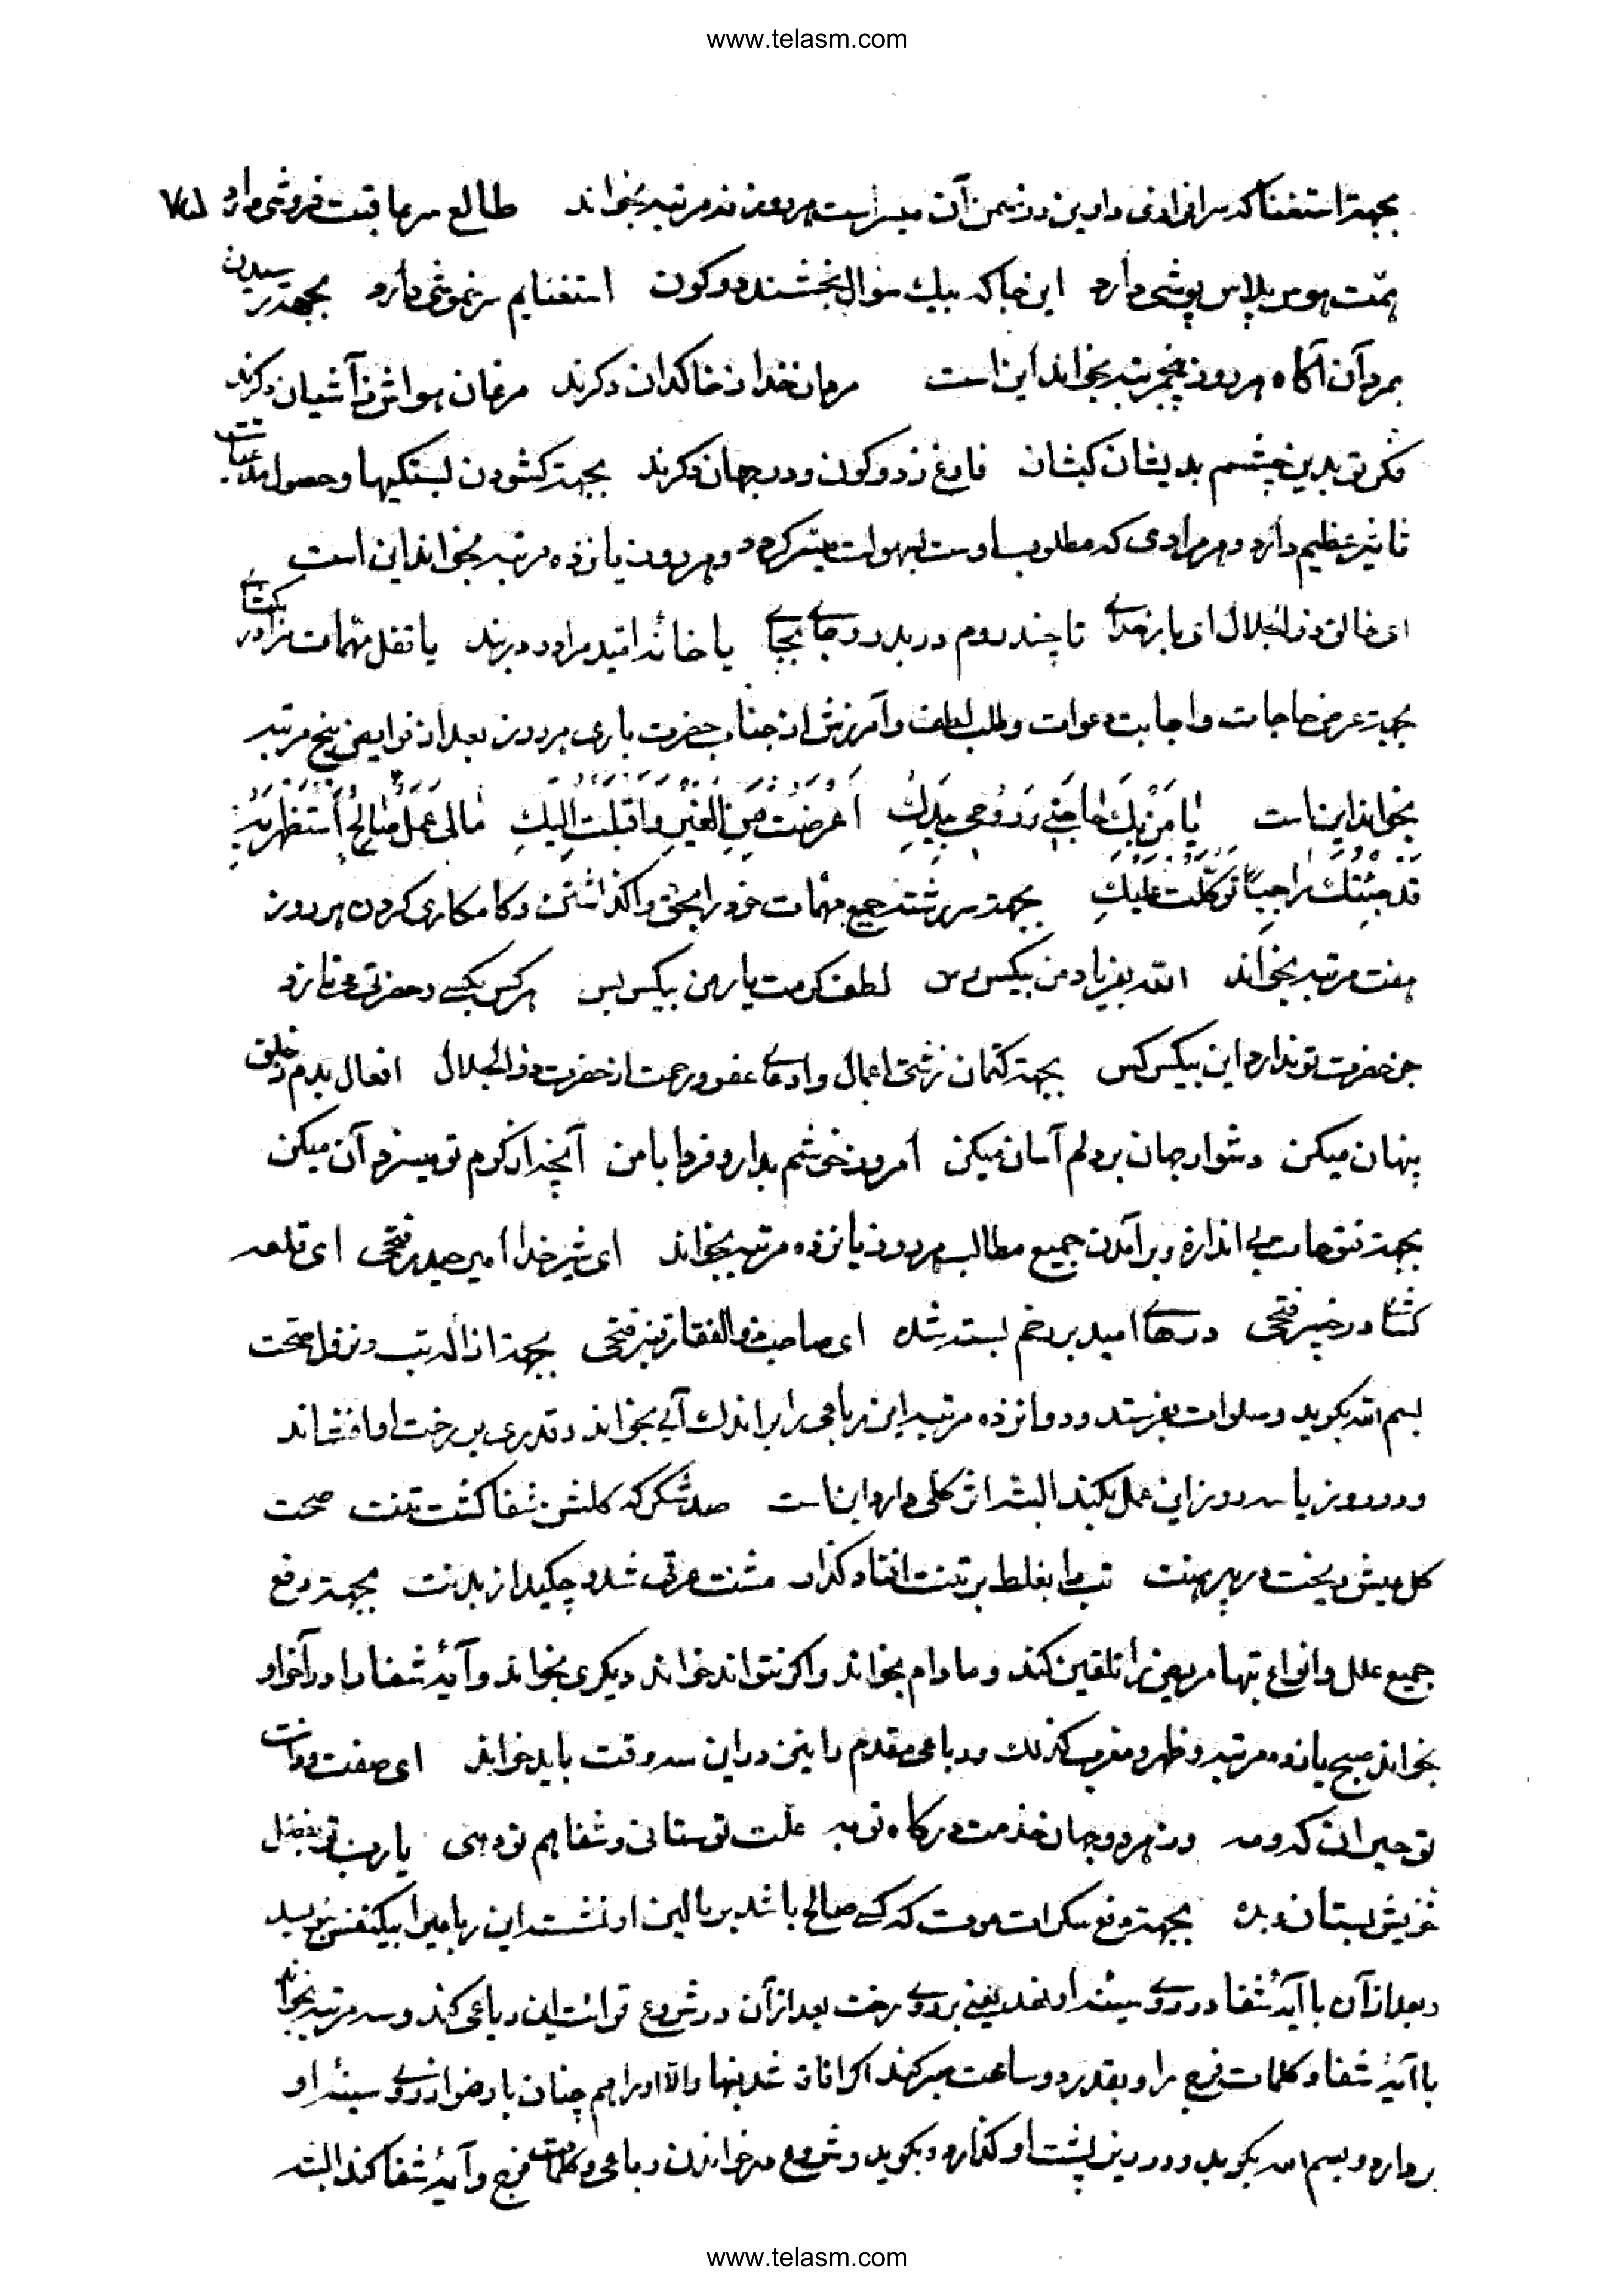 www.telasm.com
بجهة استغنا که سرافرازی دارین در ضمن آن میسر است هر روز نه مرتبه بخواند طالع سر عافیت فروشی دارد
همت هوس پلاس پوشی دارد این جا که بیک سؤال بخشند دو کون استغنایم سر خموشی دارد بجهة رسیدن
بمردان آگاه هر روز پنجمرتبه بخواند این است مردان خدا ز خاکدان دگرند مرغان هوا ز آشیان دگرند
منگر تو بدین چشم بدیشان کیشان فارغ ز دو کون و در جهان دگرند بجهة کشودن بستگیها و حصول مدعیات
تاثیر عظیم دارد و هر مرادی که مطلوب اوست بسهولت میسر گردد و هر روز پانزده مرتبه بخواند این است
ای خالق ذوالجلال ای بار خدای تا چند روم در بدر و جای بجای یا خانه امید مرا در در بند یا قفل مهمات مرا در بگشای
بجهة عرض حاجات و اجابت دعوات و طلب لطف و آمرزش از جناب حضرت باری هر روز بعد از فرایض پنج مرتبه
بخواند این است یا من بک حاجتی و روحی بیدک اعرضت من الغیر و اقبلت الیک مالی عمل صالح استظهر به
قد جئتک راجیا توکلت علیک بجهة سر رشته جمیع مهمات خود را بحق واگذاشتن و کامکاری کردن هر روز
هفت مرتبه بخواند الله بفریاد من بیکس رس لطف و کرمت یار من بیکس بس هر کس بکسی و حضرتی می نازد
جز حضرت تو ندارد این بیکس کس بجهة کتمان زشتی اعمال و ادعای عفو و رحمت از حضرت ذوالجلال افعال بدم ز خلق
پنهان میکن دشوار جهان بر دلم آسان میکن امروز خوشم بدار و فردا با من آنچه از کرم تو میسزد آن میکن
بجهة فتوحات بی اندازه و برآمدن جمیع مطالب هر روز پانزده مرتبه بخواند ای شیر خدا امیر حیدر فتحی ای قلعه
گشای در خیبر فتحی درهای امید بر رخم بسته شده ای صاحب ذوالفقار و قنبر فتحی بجهة ازاله تب و نزول صحت
بسم الله بگوید و صلوات بفرستد و دوانزده مرتبه این رباعی را بر اندک آبی بخواند و قدری بر رخت او افشاند
و دو روز یا سه روز این عمل بکند البته اثر کلی دارد این است صد شکر که گلشن شفا گشت تنت صحت
گل عیش ریخت در پیرهنت تب را بغلط بر تنت افتاد گذار مشت عرقی شد و چکید از بدنت بجهة دفع
جمیع علل و انواع تبها مریض را تلقین کند و مادام بخواند و اگر نتواند خواند دیگری بخواند و آیهٔ شفا را در آخر او
بخواند صبح یازده مرتبه و ظهر و مغرب کذلک و رباعی مقدم را نیز در این سه وقت باید خواند ای صفت ذات
تو حیران که و مه وز هر دو جهان خدمت درگاه تو به علت تو ستانی و شفا هم تو دهی یا رب تو بفضل
خویش بستان و بده بجهة دفع سکرات موت که کسی صالح باشد بر بالین او نشسته این رباعی را بیکنفس بنویسد
و بعد از آن با آیهٔ شفا در روی سینه او نهد یعنی بر روی رخت بعد از آن در شروع قرائت این رباعی کند و سه مرتبه بخواند
با آیهٔ شفا و کلمات فرج را و بقدر دو ساعت صبر کند اگر افاقه شد فبها و الا او را هم چنان با وضو از روی سینه او
بردارد و بسم الله بگوید و در زیر پشت او گذارد و بگوید و شروع در خواندن رباعی و کلمات فرج و آیهٔ شفا کند البته
www.telasm.com